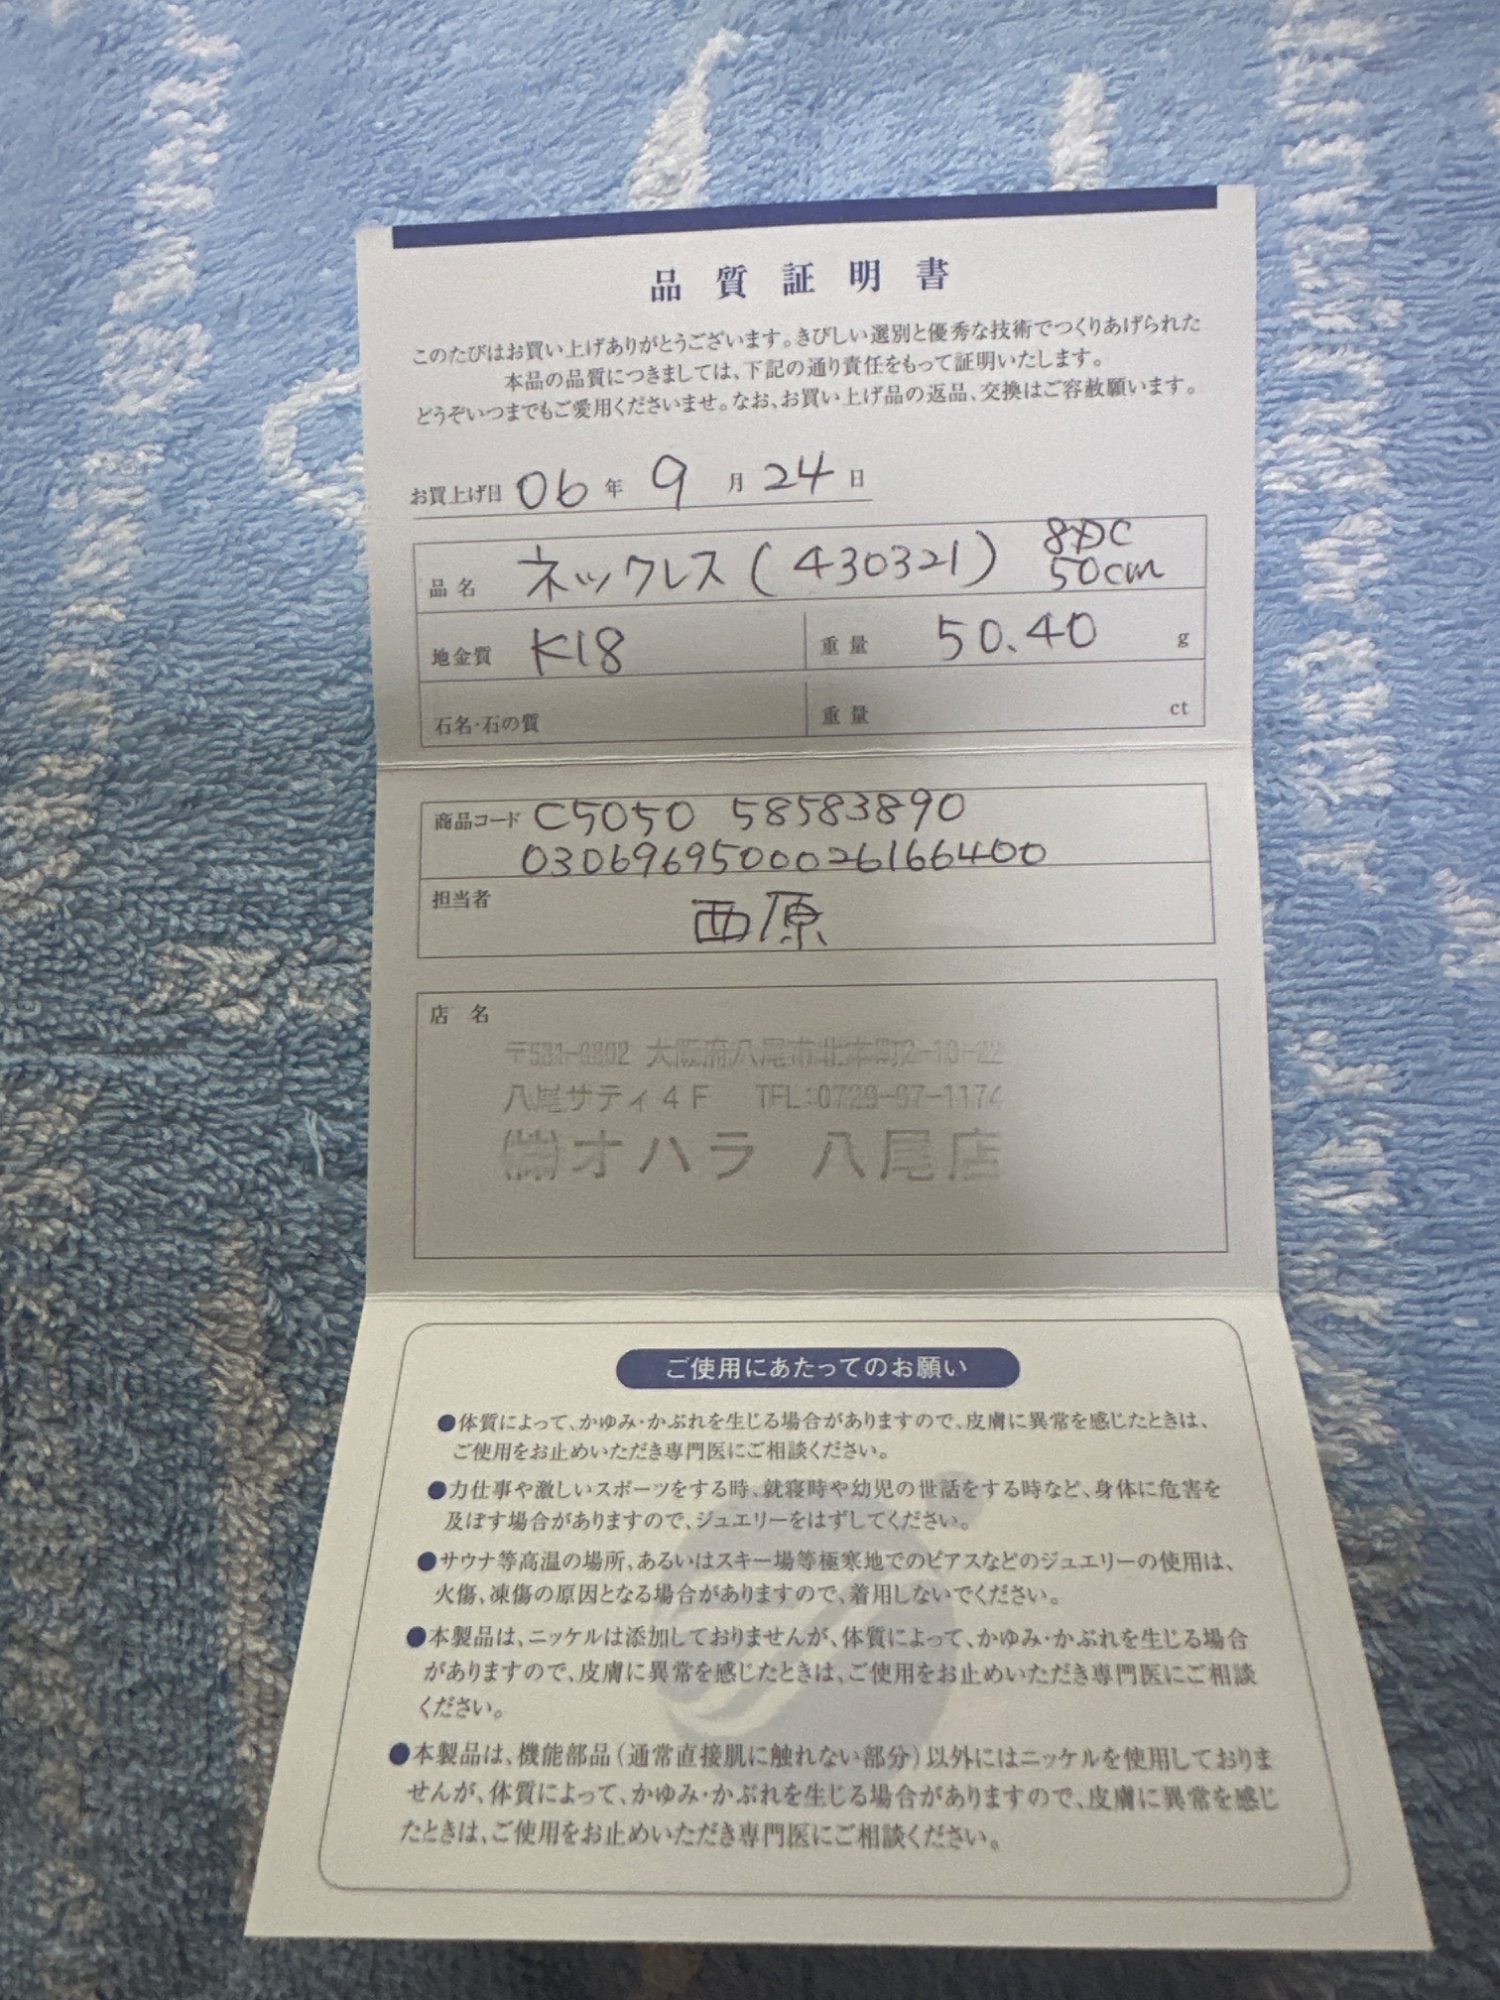 品質証明書
このたびはお買い上げありがとうございます。きびしい選別と優秀な技術でつくりあげられた
本品の品質につきましては、下記の通り責任をもって証明いたします。
どうぞいつまでもご愛用くださいませ。なお、お買い上げ品の返品、交換はご容赦願います。
お買上げ日 06 年 9 月 24 日
品名 ネックレス(430321) 8DC
50cm
地金質 K18 重量 50.40 g
石名・石の質 重量 ct
商品コード C5050 58583890
0306969500026166400
担当者 西原
店名
〒581-0802 大阪府八尾市北本町2-10-22
八尾サティ4F TEL:0729-97-1174
㈱オハラ 八尾店
ご使用にあたってのお願い
●体質によって、かゆみ・かぶれを生じる場合がありますので、皮膚に異常を感じたときは、
ご使用をお止めいただき専門医にご相談ください。
●力仕事や激しいスポーツをする時、就寝時や幼児の世話をする時など、身体に危害を
及ぼす場合がありますので、ジュエリーをはずしてください。
●サウナ等高温の場所、あるいはスキー場等極寒地でのピアスなどのジュエリーの使用は、
火傷、凍傷の原因となる場合がありますので、着用しないでください。
●本製品は、ニッケルは添加しておりませんが、体質によって、かゆみ・かぶれを生じる場合
がありますので、皮膚に異常を感じたときは、ご使用をお止めいただき専門医にご相談
ください。
●本製品は、機能部品(通常直接肌に触れない部分)以外にはニッケルを使用しておりま
せんが、体質によって、かゆみ・かぶれを生じる場合がありますので、皮膚に異常を感じ
たときは、ご使用をお止めいただき専門医にご相談ください。